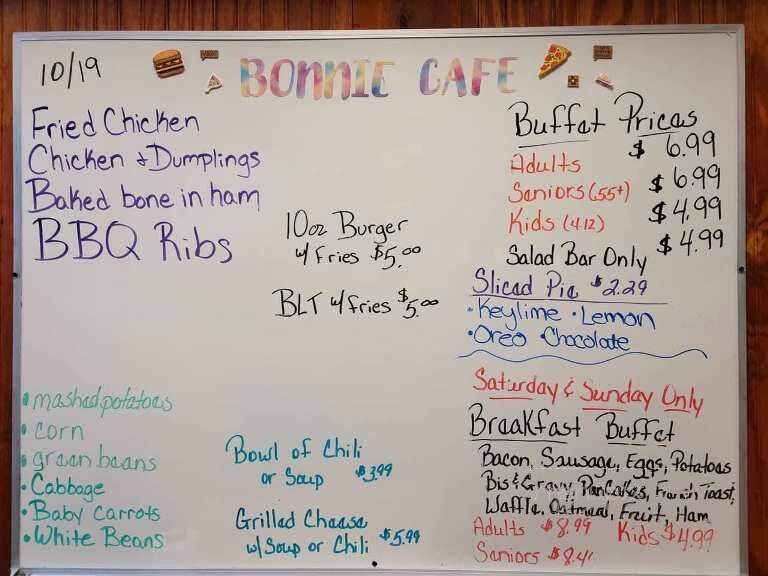 10/19
BONNIE CAFE
Fried Chicken
Chicken & Dumplings
Baked bone in ham
BBQ Ribs
10oz Burger
w/ Fries $5.00
BLT w/ fries $5.00
Buffet Prices
Adults $6.99
Seniors (55+) $6.99
Kids (4-12) $4.99
Salad Bar Only $4.99
Sliced Pie $2.29
• Keylime • Lemon
• Oreo • Chocolate
Saturday & Sunday Only
Breakfast Buffet
Bacon, Sausage, Eggs, Potatoes
Bis & Gravy, Pancakes, French Toast,
Waffle, Oatmeal, Fruit, Ham
Adults $8.99 Kids $4.99
Seniors
• mashed potatoes
• corn
• green beans
• Cabbage
• Baby Carrots
• White Beans
Bowl of Chili
or Soup $3.99
Grilled Cheese
w/ Soup or Chili $5.99